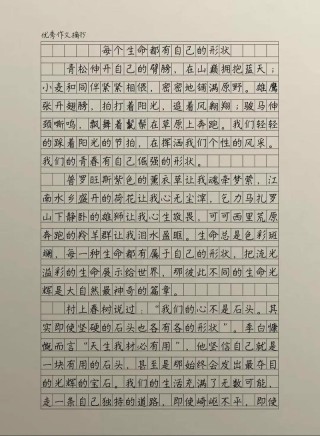 优秀作文摘抄
每个生命都有自己的形状
青松伸开自己的臂膀,在山巅拥抱蓝天;
小麦和同伴紧紧相偎,密密地铺满原野。雄鹰
张开翅膀,拍打着阳光,追着风翱翔;骏马伸
颈嘶鸣,飘舞着鬣鬃在草原上奔跑。我们轻轻
的踩着阳光的节拍,在挥洒我们个性的风采。
我们的青春有自己倔强的形状。
普罗旺斯紫色的薰衣草让我魂牵梦萦,江
南水乡盛开的荷花让我心无尘滓,乞力马扎罗
山下静卧的雄狮让我心生敬畏,可可西里荒原
奔跑的羚羊群让我泪水盈眶。生命总是色彩斑
斓,每一种生命都有属于自己的形状,把流光
溢彩的生命展示给世界,那彼此不同的生命光
辉是大自然最神奇的篇章。
村上春树说过:“我们的心不是石头。其
实即使坚硬的石头也各有各的形状”。李白慷
慨而言“天生我材必有用”,他坚信自己就是
一块有用的石头,甚至是那始终会发出最夺目
的光辉的宝石。我们的生活充满了无数可能,
走一条自己独持的道路,即使崎岖不平,即使